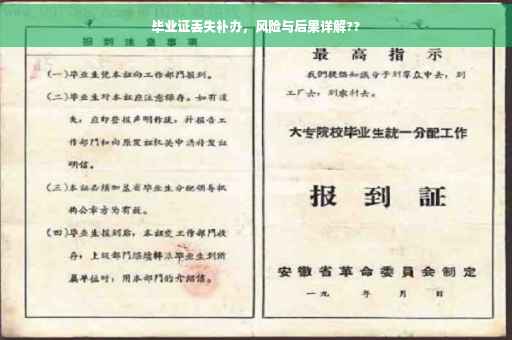 毕业证丢失补办，风险与后果详解??
报到注意事项
(一)毕业生凭本证向工作部门报到。
(二)毕业生对本证应注意保存。如有遗
失，应即登报声明作废，并报告工
作部门和向原发证机关申请补发证
明信。
(三)本证必须加盖省毕业生分配领导机
构公章方为有效。
(四)毕业生报到后，本证交工作部门收
存；上级部门
毕业生到所
属单位时，用本部门的介绍信。
最高指示
我们提倡知识分子到群众中去，到
工厂去，到农村去。
大专院校毕业生統一分配工作
报到証
安徽省革命委員会制定
一九 年 月 日